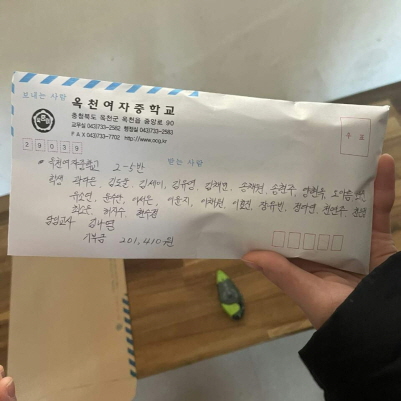 보내는 사람
옥천여자중학교
충청북도 옥천군 옥천읍 중앙로 90
교무실 043)733-2562 행정실 043)733-2563
FAX 043)733-7702 http://www.ocg.kr
29039
우표
받는 사람
옥천여자중학교 2-5반
학생 곽다은, 김도은, 김세이, 김유영, 김채민, 송채원, 송현주
유소연, 윤수안, 이서은, 이윤지, 이채원, 이효진, 장유빈, 정아연, 천연주
최소은, 허지수, 현수경
담임교사 김나영
기부금 201,410원